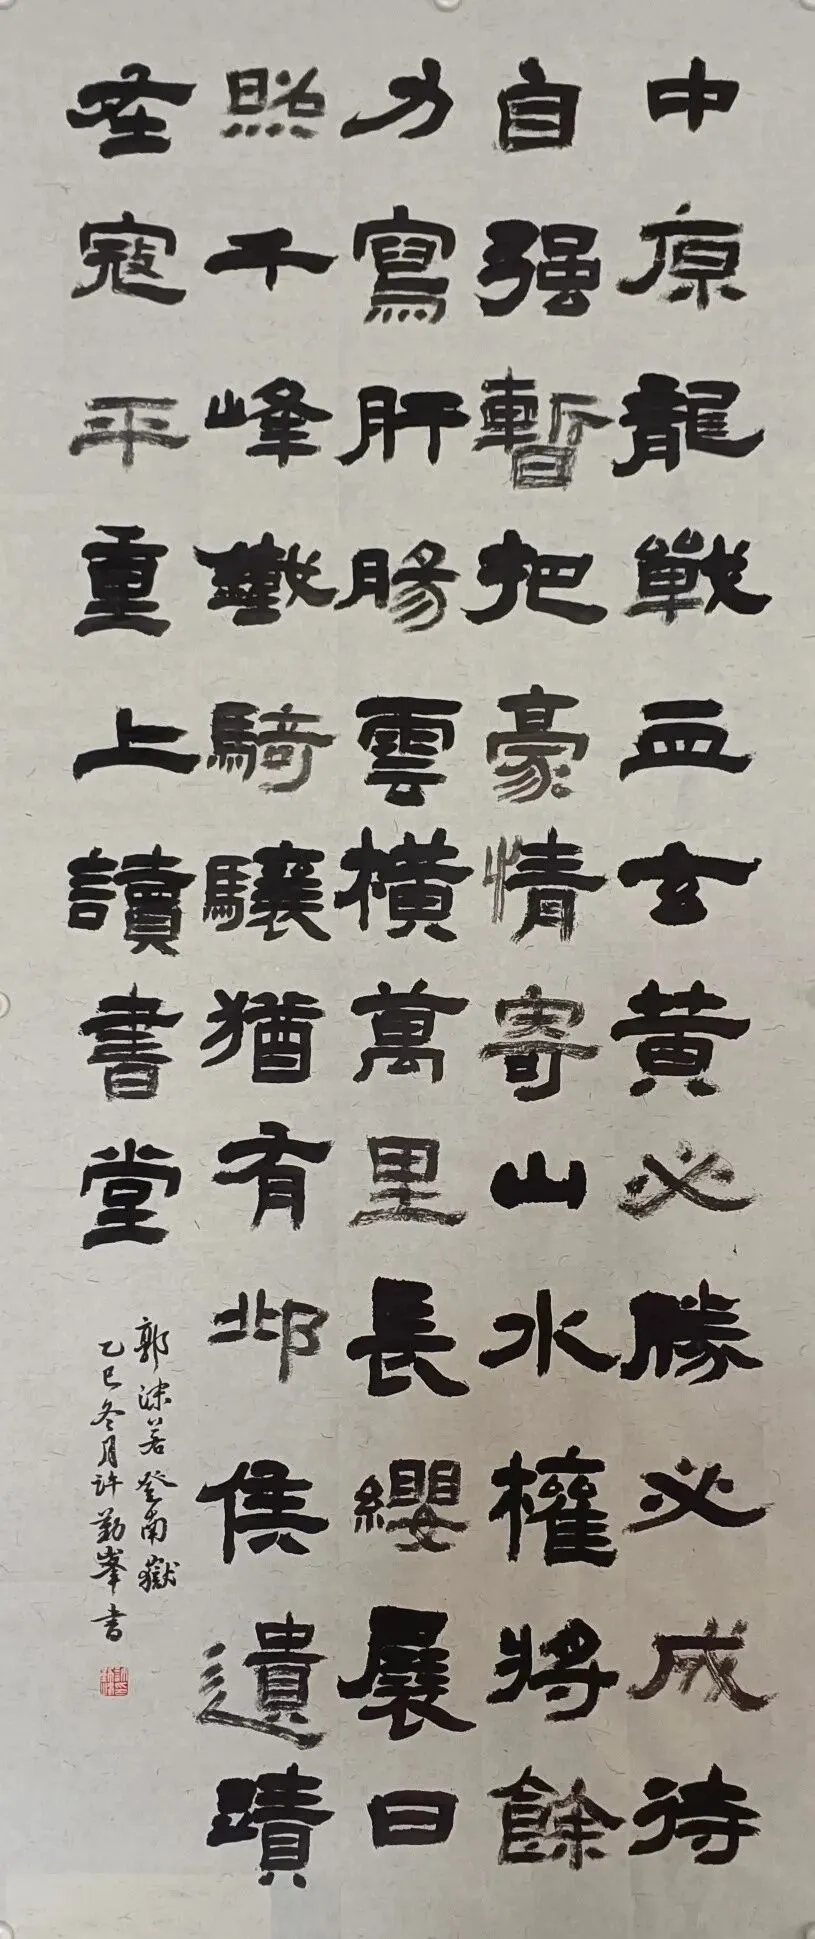 中原龍戰血玄黄必勝必成待
自强暫把豪情寄山水權將餘
力寫肝腸雲横萬里長纓展日
照千峰鐵騎驤猶有邺侯遺蹟
在寇平重上讀書堂
郭沫若登南嶽
乙巳冬月許勤峯書